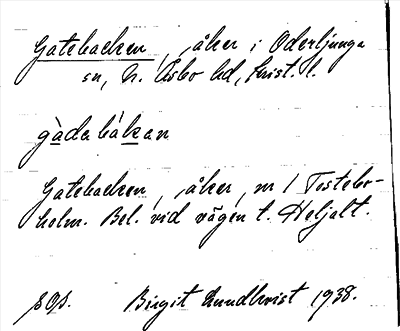 Gatebacken, åker i Oderljunga
sn, N. Åsbo hd, Krist. l.
gàdabákan
Gatebacken, åker, nr 1 Tostebo-
holm. Bel. vid vägen t. Heljalt.
Birgit Lundkvist 1938.